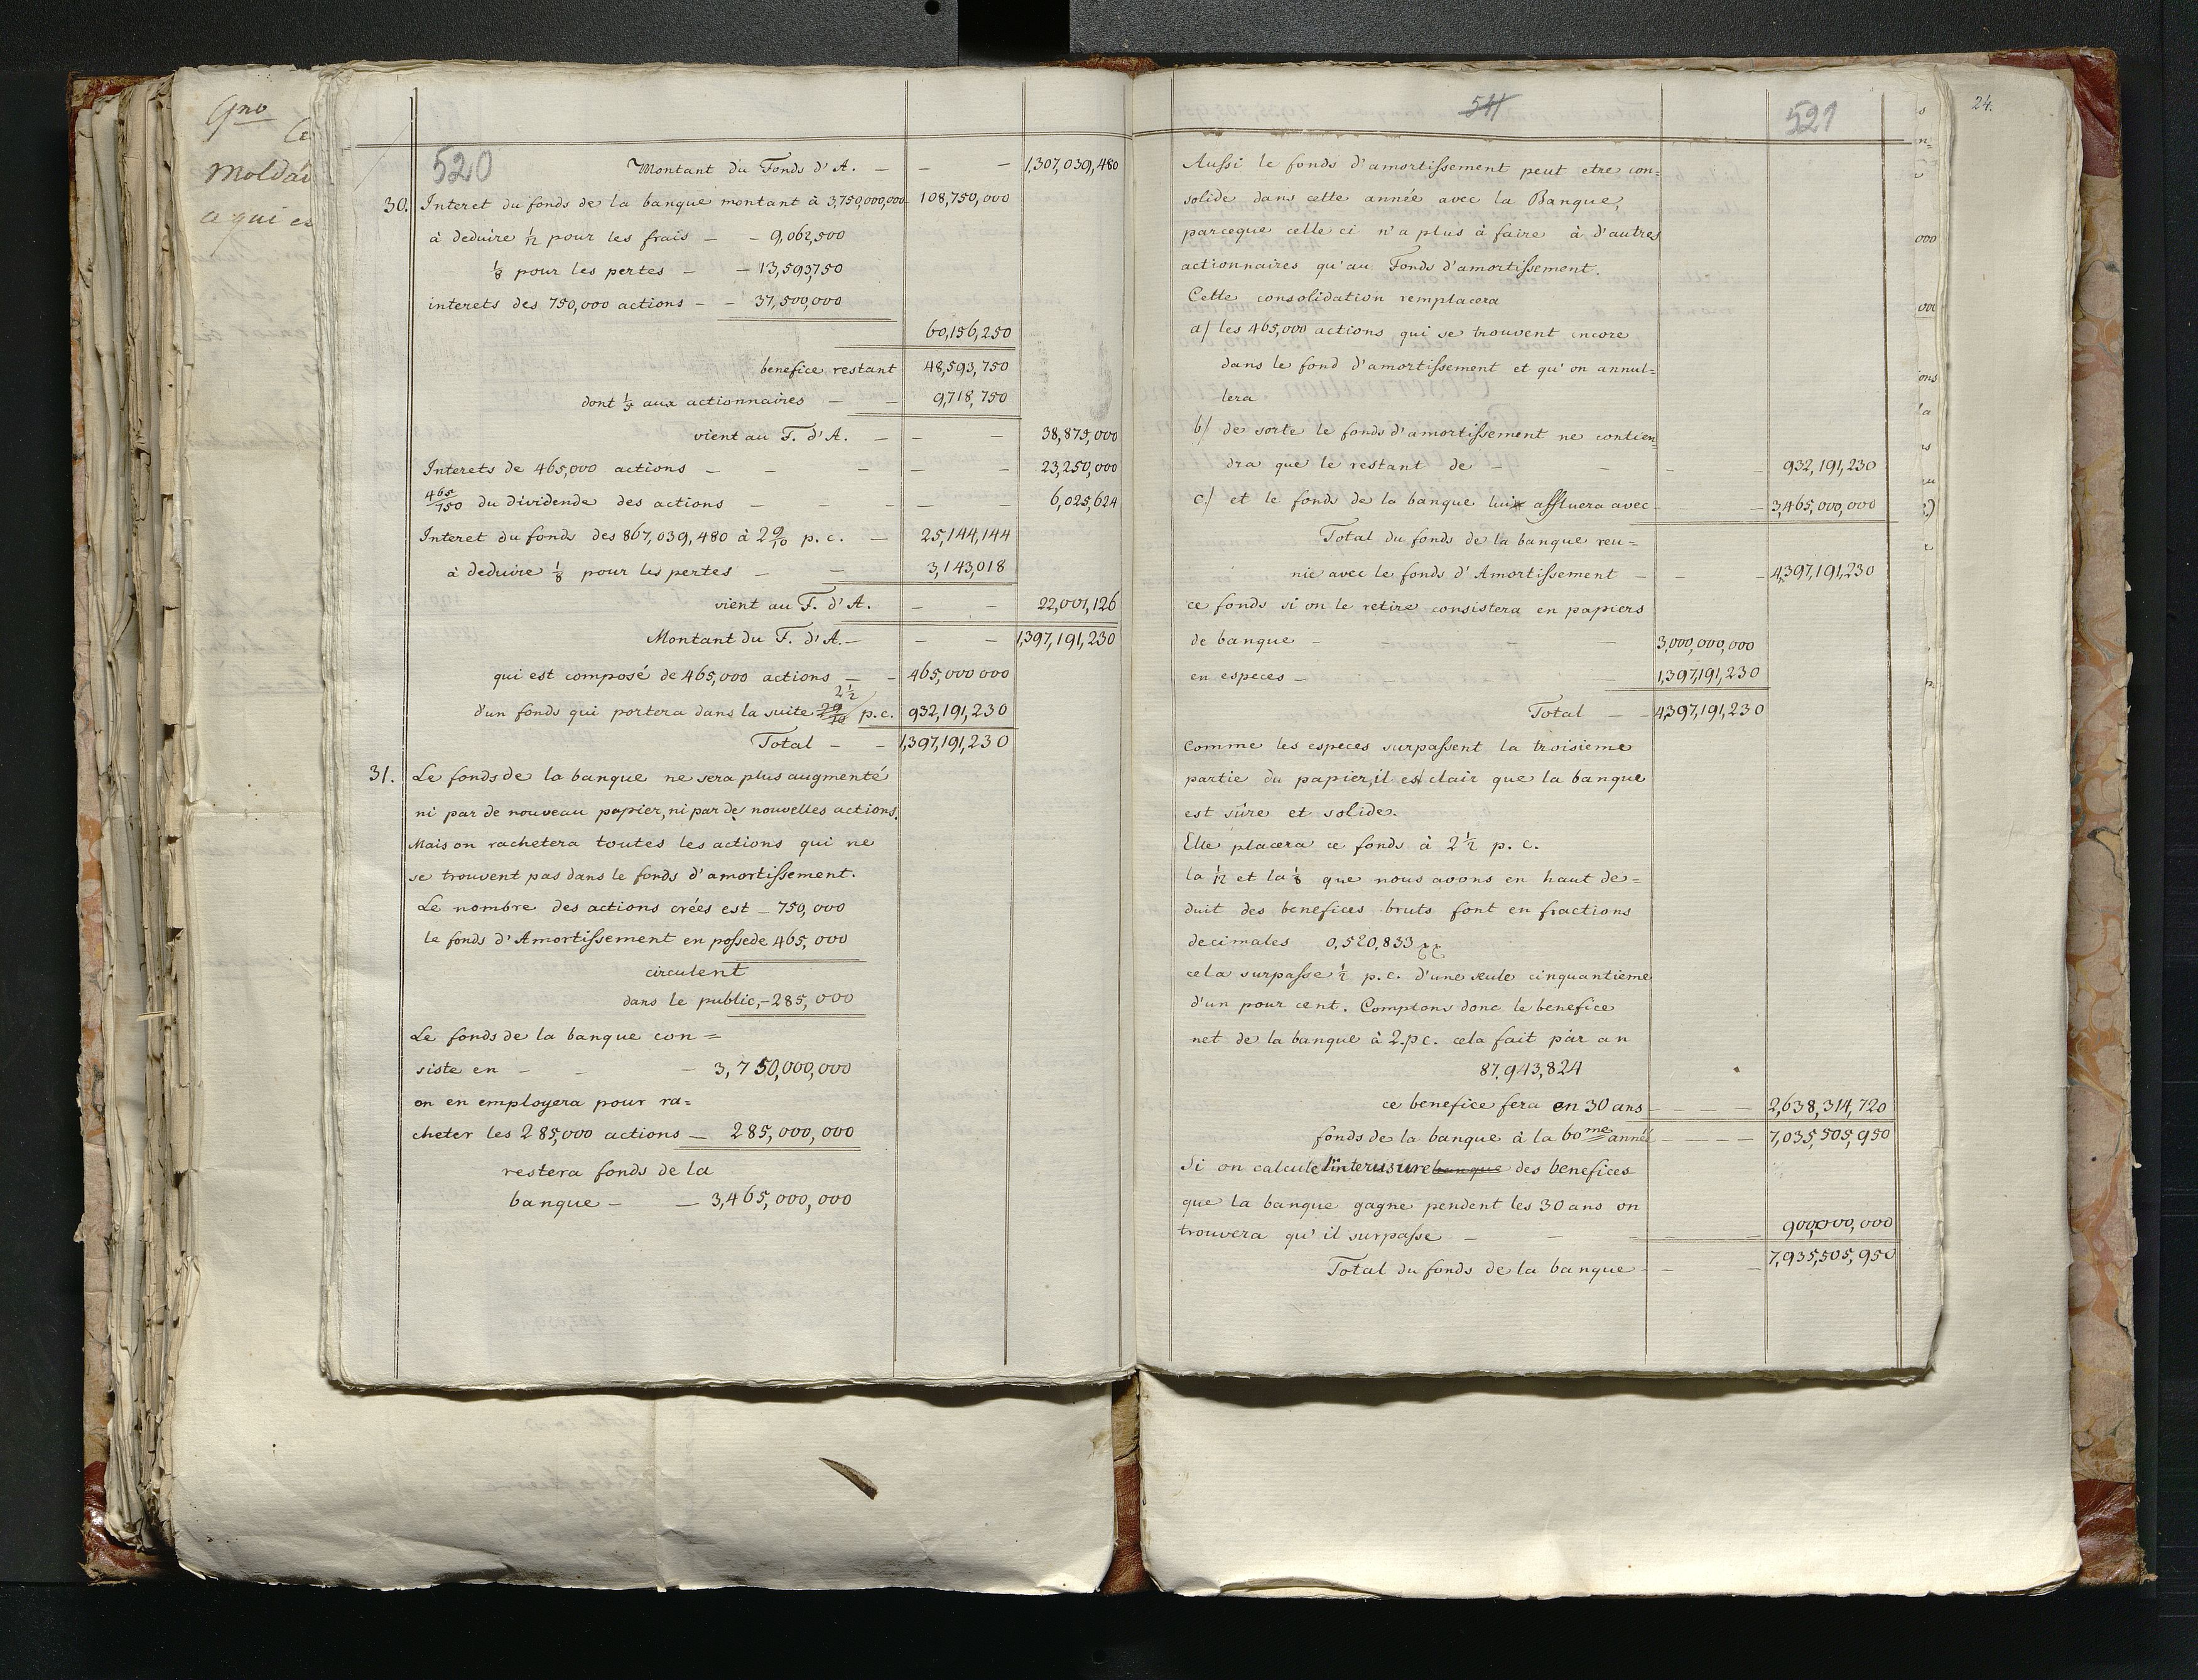 Gno
Ce
Moldav
a qui es
520
Montant du Fonds d'A. — — — 1,307,039,480
30. Interet du fonds de la banque montant à 3,750,000,000 108,750,000
à deduire 1/12 pour les frais — — 9,062,500
1/8 pour les pertes — — 13,593,750
interets des 750,000 actions — — 37,500,000
60,156,250
benefice restant 48,593,750
dont 1/5 aux actionnaires — — 9,718,750
vient au F. d'A. — — — 38,875,000
Interets de 465,000 actions — — — — — 23,250,000
465/750 du dividende des actions — — — — 6,025,624
Interet du fonds des 867,039,480 à 2 9/10 p. c. — 25,144,144
à deduire 1/8 pour les pertes — — 3,143,018
vient au F. d'A. — — 22,001,126
Montant du F. d'A. — — — 1,397,191,230
qui est composé de 465,000 actions — — 465,000,000
2 1/2
d'un fonds qui portera dans la suite 2 9/10 p.c. 932,191,230
Total — — 1,397,191,230
31. Le fonds de la banque ne sera plus augmenté
ni par de nouveau papier, ni par de nouvelles actions.
Mais on rachetera toutes les actions qui ne
se trouvent pas dans le fonds d'amortissement.
Le nombre des actions crées est — 750,000
le fonds d'Amortissement en possede 465,000
circulent
dans le public, — 285,000
Le fonds de la banque con=
siste en — — — 3,750,000,000
on en employera pour ra=
cheter les 285,000 actions — 285,000,000
restera fonds de la
banque — — 3,465,000,000
541
521
Aussi le fonds d'amortissement peut etre con=
solide dans cette année avec la Banque,
parceque celle ci n'a plus à faire à d'autres
actionnaires qu'au Fonds d'amortissement.
Cette consolidation remplacera
a) les 465,000 actions qui se trouvent encore
dans le fond d'amortissement et qu'on annul=
lera
b) de sorte le fonds d'amortissement ne contien=
dra que le restant de — — — — 932,191,230
c) et le fonds de la banque lui affluera avec — — 3,465,000,000
Total du fonds de la banque reu=
nie avec le fonds d'Amortissement — — — 4,397,191,230
ce fonds si on le retire consistera en papiers
de banque — — — 3,000,000,000
en especes — — 1,397,191,230
Total — — 4,397,191,230
Comme les especes surpassent la troisieme
partie du papier, il est clair que la banque
est sûre et solide.
Elle placera ce fonds à 2 1/2 p. c.
la 1/12 et la 1/8 que nous avons en haut de=
duit des benefices bruts font en fractions
decimales 0,520,833
cela surpasse 1/2 p. c. d'une seule cinquantieme
d'un pour cent. Comptons donc le benefice
net de la banque à 2. p c. cela fait par an
87,943,824
ce benefice fera en 30 ans — — — — 2,638,314,720
fonds de la banque à la 60me année — — — — 7,035,505,950
Si on calcule l'interusure banque des benefices
que la banque gagne pendent les 30 ans on
trouvera qu'il surpasse — — — — 900,000,000
Total du fonds de la banque — — — 7,935,505,950
24.